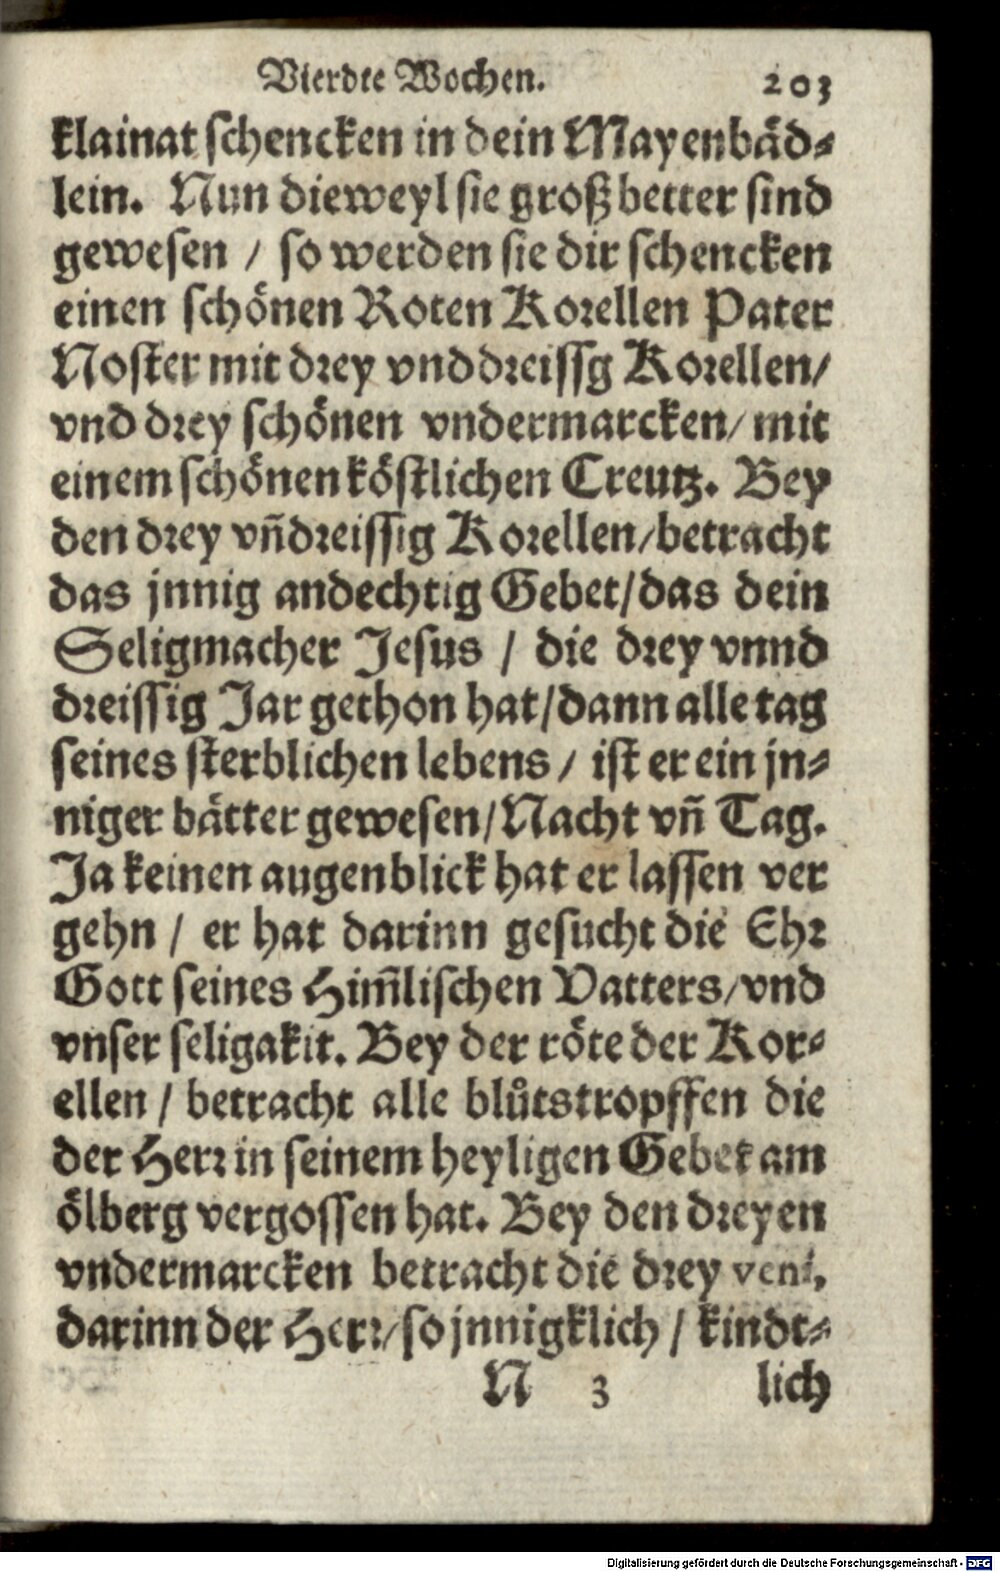 Vierdte Wochen. 203
klainat schencken in dein Mayenbäd⸗
lein. Nun dieweyl sie groß better sind
gewesen / so werden sie dir schencken
einen schönen Roten Korellen Pater
Noster mit drey vnd dreissg Korellen/
vnd drey schönen vndermarcken/ mit
einem schönen köstlichen Creutz. Bey
den drey vñ dreissig Korellen/betracht
das jnnig andechtig Gebet/das dein
Seligmacher Jesus / die drey vnnd
dreissig Jar gethon hat/dann alle tag
seines sterblichen lebens / ist er ein jn⸗
niger bätter gewesen/Nacht vñ Tag.
Ja keinen augenblick hat er lassen ver
gehn / er hat darinn gesucht die Ehr
Gott seines Him̃lischen Vatters/vnd
vnser seligakit. Bey der röte der Kor⸗
ellen / betracht alle blůtstropffen die
der Herr in seinem heyligen Gebet am
ölberg vergossen hat. Bey den dreyen
vndermarcken betracht die drey veni,
darinn der Herr/so jnnigklich / kindt⸗
N 3 lich
Digitalisierung gefördert durch die Deutsche Forschungsgemeinschaft - DFG